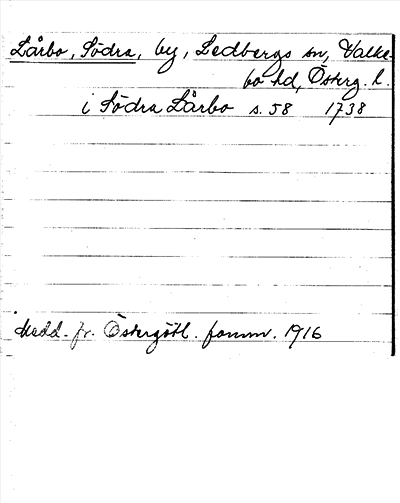 Lårbo, Södra, by, Ledbergs sn, Valke-
bo hd, Österg. l.
i Södra Lårbo s. 58 1738
Medd. fr. Östergötl. fornm. 1916